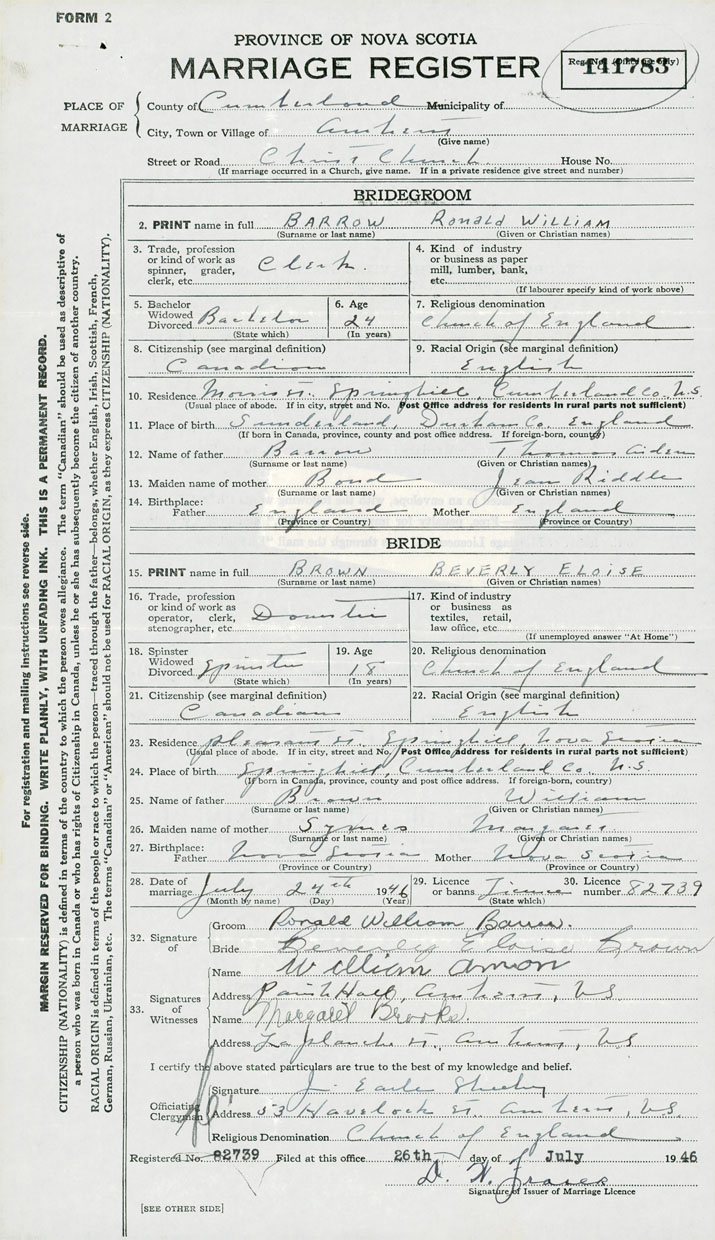 FORM 2
PROVINCE OF NOVA SCOTIA
MARRIAGE REGISTER
Reg. No. (Office use only)
141783
PLACE OF MARRIAGE
County of Cumberland Municipality of
City, Town or Village of Amherst
(Give name)
Street or Road Christ Church House No.
(If marriage occurred in a Church, give name. If in a private residence give street and number)
BRIDEGROOM
2. PRINT name in full BARROW RONALD WILLIAM
(Surname or last name) (Given or Christian names)
3. Trade, profession or kind of work as spinner, grader, clerk, etc. Clerk.
4. Kind of industry or business as paper mill, lumber, bank, etc.
(If labourer specify kind of work above)
5. Bachelor Widowed Divorced Bachelor
(State which)
6. Age 24
(In years)
7. Religious denomination
Church of England
8. Citizenship (see marginal definition)
Canadian
9. Racial Origin (see marginal definition)
English
10. Residence Morris St. Springhill, Cumberland Co. N.S.
(Usual place of abode. If in city, street and No. Post Office address for residents in rural parts not sufficient)
11. Place of birth Sunderland, Durham Co. England
(If born in Canada, province, county and post office address. If foreign-born, county)
12. Name of father Barrow Thomas Aiden
(Surname or last name) (Given or Christian names)
13. Maiden name of mother Bond Jean Riddle
(Surname or last name) (Given or Christian names)
14. Birthplace: Father England Mother England
(Province or Country) (Province or Country)
BRIDE
15. PRINT name in full BROWN BEVERLY ELOISE
(Surname or last name) (Given or Christian names)
16. Trade, profession or kind of work as operator, clerk, stenographer, etc. Domestic
17. Kind of industry or business as textiles, retail, law office, etc.
(If unemployed answer "At Home")
18. Spinster Widowed Divorced Spinster
(State which)
19. Age 18
(In years)
20. Religious denomination
Church of England
21. Citizenship (see marginal definition)
Canadian
22. Racial Origin (see marginal definition)
English
23. Residence Pleasant St. Springhill, Nova Scotia
(Usual place of abode. If in city, street and No. Post Office address for residents in rural parts not sufficient)
24. Place of birth Springhill, Cumberland Co. N.S
(If born in Canada, province, county and post office address. If foreign-born, country)
25. Name of father Brown William
(Surname or last name) (Given or Christian names)
26. Maiden name of mother Symes Margaret
(Surname or last name) (Given or Christian names)
27. Birthplace: Father Nova Scotia Mother Nova Scotia
(Province or Country) (Province or Country)
28. Date of marriage July 24th 1946
(Month by name) (Day) (Year)
29. Licence or banns License
(State which)
30. Licence number 82739
32. Signature of
Groom Ronald William Barrow.
Bride Beverley Eloise Brown
33. Signatures of Witnesses
Name William Amon
Address Parish Hall, Amherst, N.S.
Name Margaret Brooks.
Address La planche St., Amherst, N.S
I certify the above stated particulars are true to the best of my knowledge and belief.
Officiating Clergyman
Signature J. Earle
Address 53 Havelock St. Amherst, N.S.
Religious Denomination Church of England
Registered No. 82739 Filed at this office 26th day of July 1946
D. W. Fraser
Signature of Issuer of Marriage Licence
[SEE OTHER SIDE]
For registration and mailing instructions see reverse side.
MARGIN RESERVED FOR BINDING. WRITE PLAINLY, WITH UNFADING INK. THIS IS A PERMANENT RECORD.
CITIZENSHIP (NATIONALITY) is defined in terms of the country to which the person owes allegiance. The term "Canadian" should be used as descriptive of
a person who was born in Canada or who has rights of Citizenship in Canada, unless he or she has subsequently become the citizen of another country.
RACIAL ORIGIN is defined in terms of the people or race to which the person—traced through the father—belongs, whether English, Irish, Scottish, French,
German, Russian, Ukrainian, etc. The terms "Canadian" or "American" should not be used for RACIAL ORIGIN, as they express CITIZENSHIP (NATIONALITY).